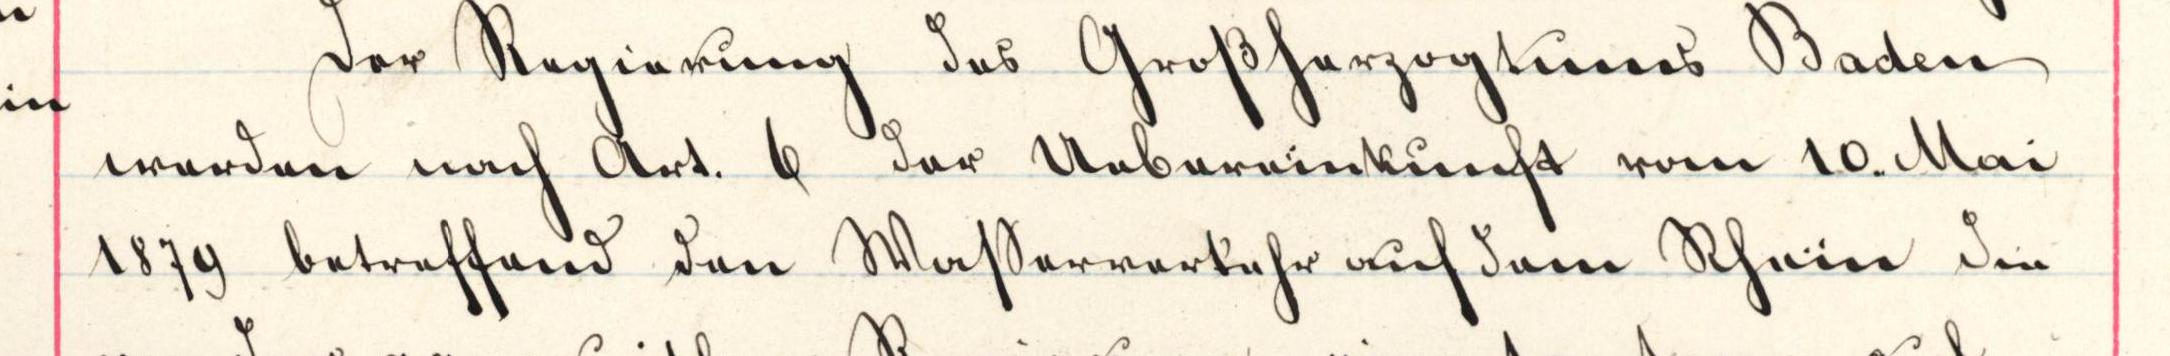 Der Regierung des Großherzogtums Baden
werden nach Art. 6 der Uebereinkunft vom 10. Mai
1879 betreffend den Wasserverkehr auf dem Rhein die